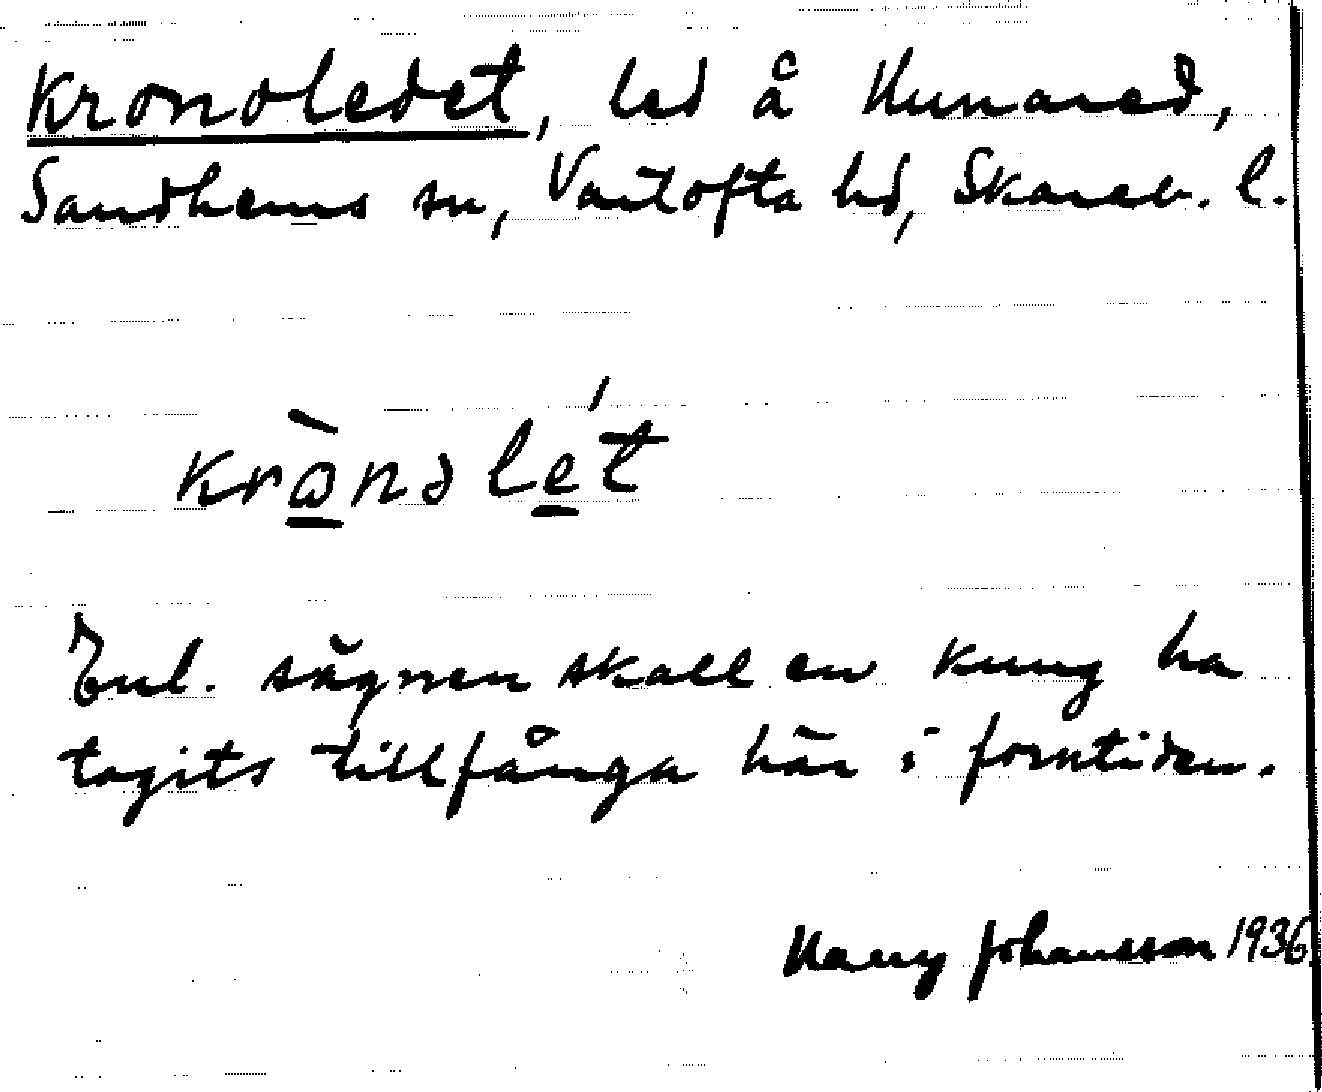 Kronoledet, led å Kunared,
Sandhems sn, Vartofta hd, Skarab. l.
krònəlét
Enl. sägnen skall en kung ha
tagits tillfånga här i forntiden.
Harry Johansson 1936